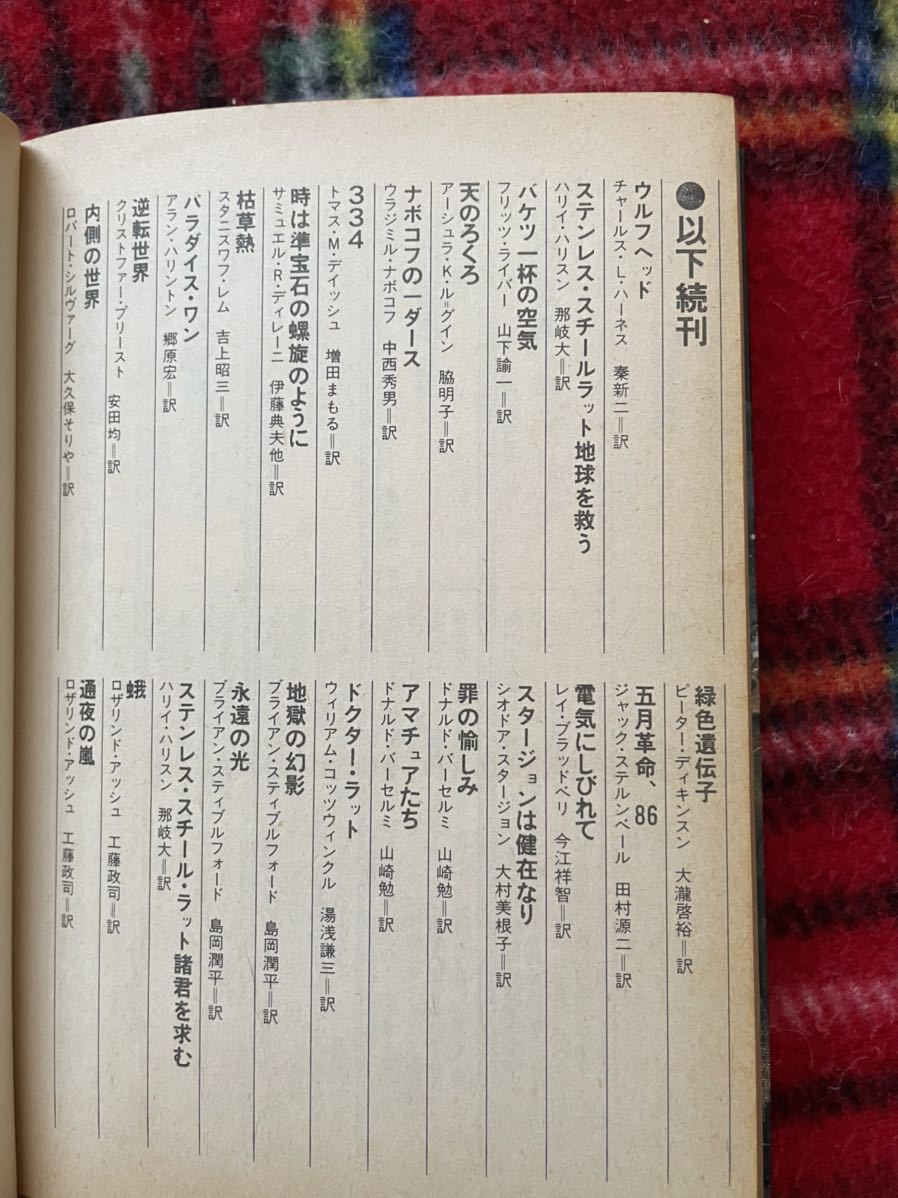 ●以下続刊
ウルフヘッド
チャールス・L・ハーネス 秦新二＝訳
ステンレス・スチールラット地球を救う
ハリイ・ハリスン 那岐大＝訳
バケツ一杯の空気
フリッツ・ライバー 山下諭一＝訳
天のろくろ
アーシュラ・K・ル＝グイン 脇明子＝訳
ナボコフの一ダース
ウラジミル・ナボコフ 中西秀男＝訳
334
トマス・M・デイッシュ 増田まもる＝訳
時は準宝石の螺旋のように
サミュエル・R・ディレーニ 伊藤典夫他＝訳
枯草熱
スタニスワフ・レム 吉上昭三＝訳
パラダイス・ワン
アラン・ハリントン 郷原宏＝訳
逆転世界
クリストファー・プリースト 安田均＝訳
内側の世界
ロバート・シルヴァーグ 大久保そりや＝訳
緑色遺伝子
ピーター・ディキンスン 大瀧啓裕＝訳
五月革命、86
ジャック・ステルンベール 田村源二＝訳
電気にしびれて
レイ・ブラッドベリ 今江祥智＝訳
スタージョンは健在なり
シオドア・スタージョン 大村美根子＝訳
罪の愉しみ
ドナルド・バーセルミ 山崎勉＝訳
アマチュアたち
ドナルド・バーセルミ 山崎勉＝訳
ドクター・ラット
ウィリアム・コッツウィンクル 湯浅謙三＝訳
地獄の幻影
ブライアン・スティブルフォード 島岡潤平＝訳
永遠の光
ブライアン・スティブルフォード 島岡潤平＝訳
ステンレス・スチール・ラット諸君を求む
ハリイ・ハリスン 那岐大＝訳
蛾
ロザリンド・アッシュ 工藤政司＝訳
通夜の嵐
ロザリンド・アッシュ 工藤政司＝訳